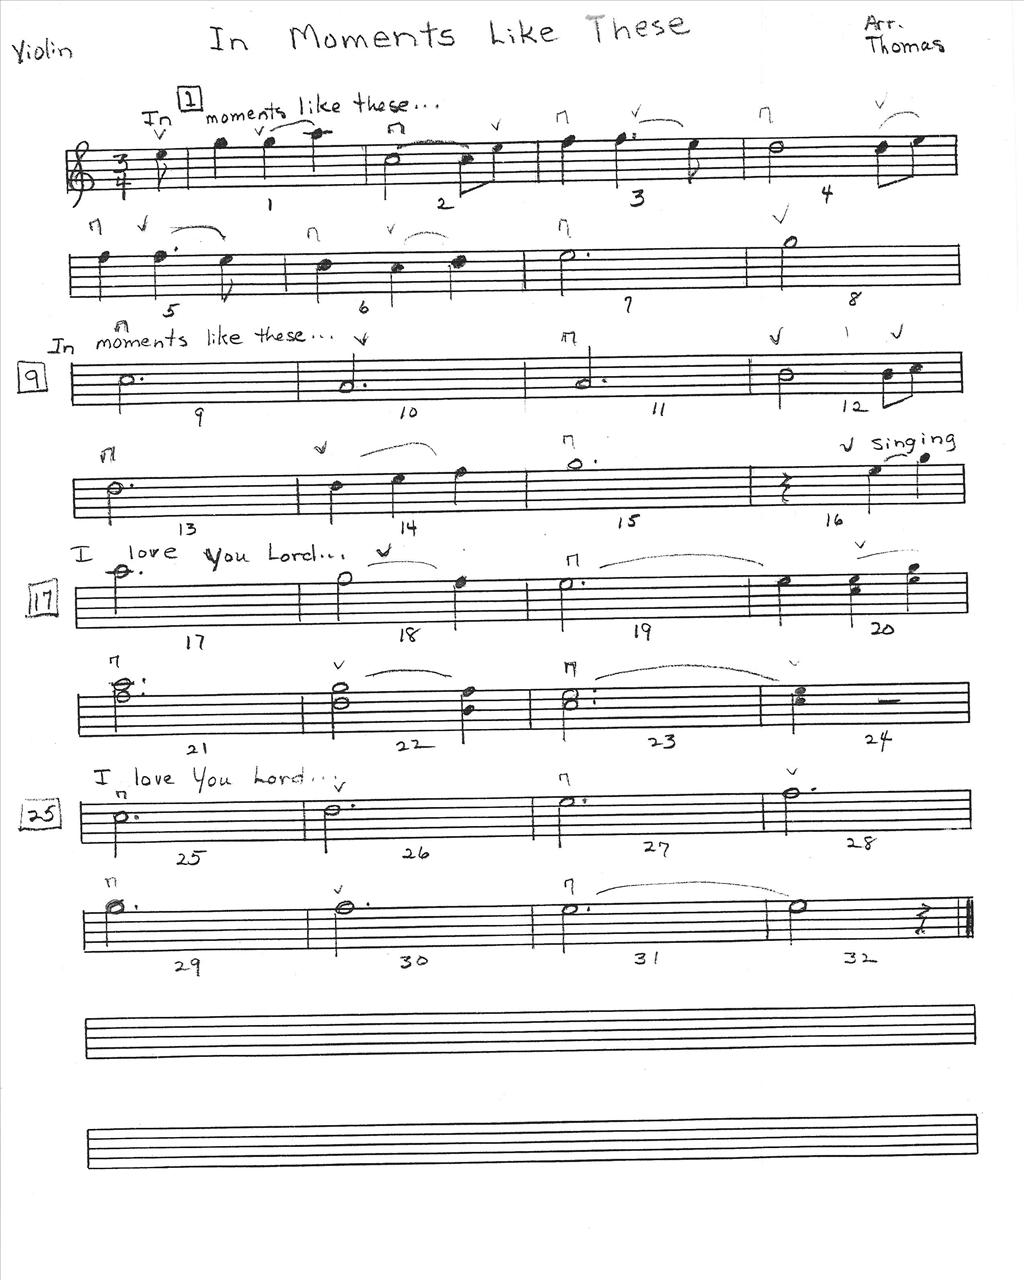 Violin
In Moments Like These
Arr.
Thomas
In 1 moments like these...
3
4
1 2 3 4
5 6 7 8
In moments like these...
9
9 10 11 12
singing
13 14 15 16
I love You Lord...
17
17 18 19 20
21 22 23 24
I love You Lord...
25
25 26 27 28
29 30 31 32